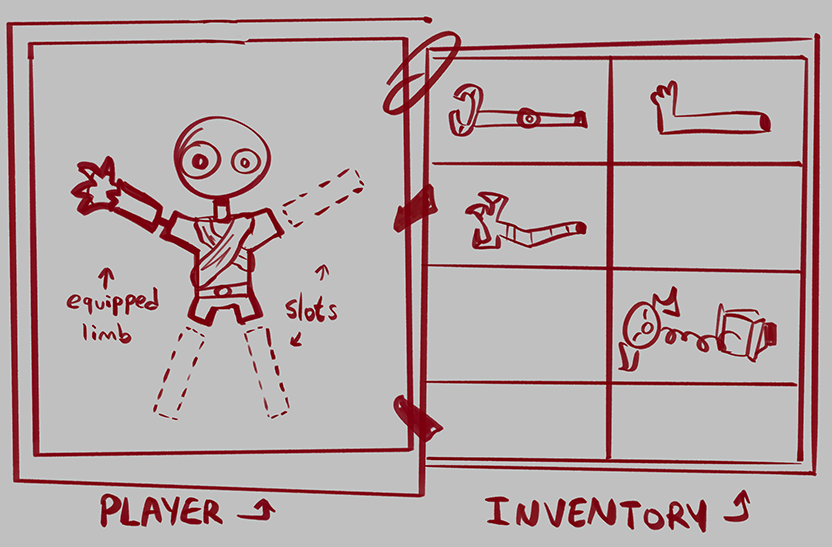 equipped
limb
slots
PLAYER
INVENTORY